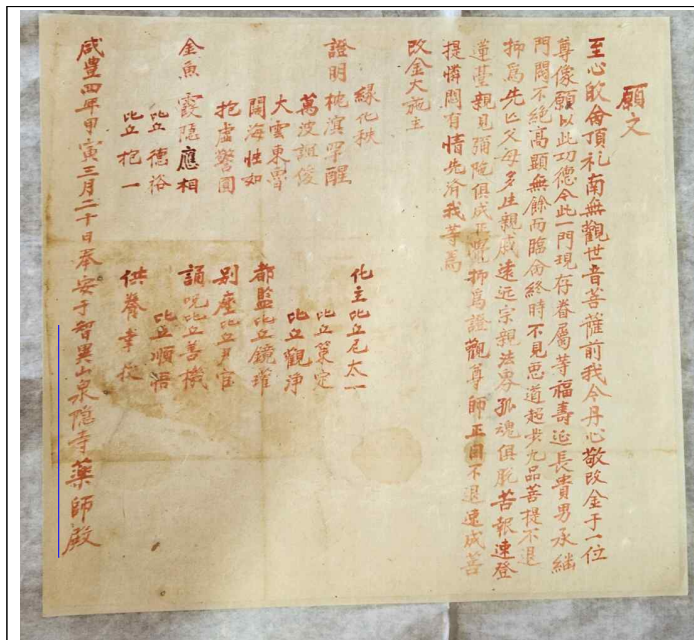 願文
至心皈命頂礼南無觀世音菩薩前我今丹心敬改金于一位
尊像願以此功德令此一門現存眷屬等福壽延長貴男承継
門閥不絶高顯無餘而臨命終時不見惡道超昇九品菩提不退
抑爲先亡父母多生親戚遠近宗親法界孤魂俱脫苦報速登
蓮臺親見彌陀俱成正覺抑爲證觀尊師正因不退速成菩
提憐閔有情先濟我等焉
改金大施主
緣化秩
證明桃溟罕醒
萬波誼俊
大雲東雪
闊海性如
抱虛警圓
金魚霞隐應相
比丘德裕
比丘抱一
化主比丘尼太一
比丘策定
比丘觀淨
都監比丘鏡瓘
别座比丘月官
誦呪比丘善機
比丘順悟
供養幸俊
咸豊四年甲寅三月二十日奉安于智異山泉隐寺藥師殿